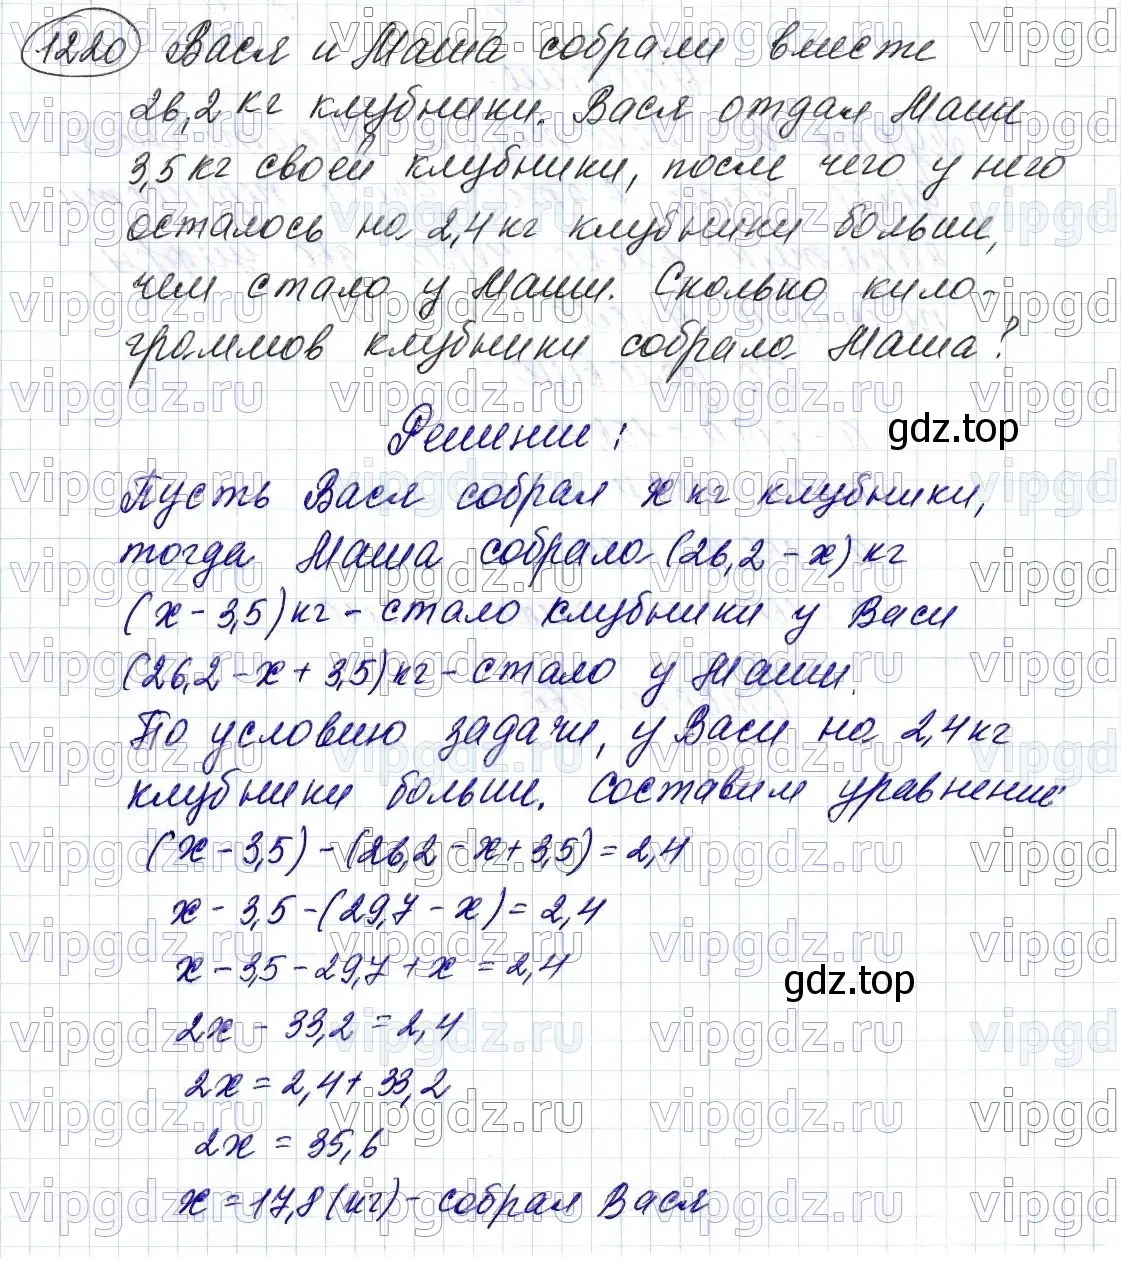 1220 Вася и Маша собрали вместе
26,2 кг клубники. Вася отдал Маше
3,5 кг своей клубники, после чего у него
осталось на 2,4 кг клубники больше,
чем стало у Маши. Сколько кило-
граммов клубники собрала Маша?
Решение:
gdz.top
Пусть Вася собрал x кг клубники,
тогда Маша собрала (26,2 - x) кг
(x - 3,5) кг - стало клубники у Васи
(26,2 - x + 3,5) кг - стало у Маши.
По условию задачи, у Васи на 2,4 кг
клубники больше. Составим уравнение:
(x - 3,5) - (26,2 - x + 3,5) = 2,4
x - 3,5 - (29,7 - x) = 2,4
x - 3,5 - 29,7 + x = 2,4
gdz.top
2x - 33,2 = 2,4
2x = 2,4 + 33,2
2x = 35,6
x = 17,8 (кг) - собрал Вася
vipgdz.ru